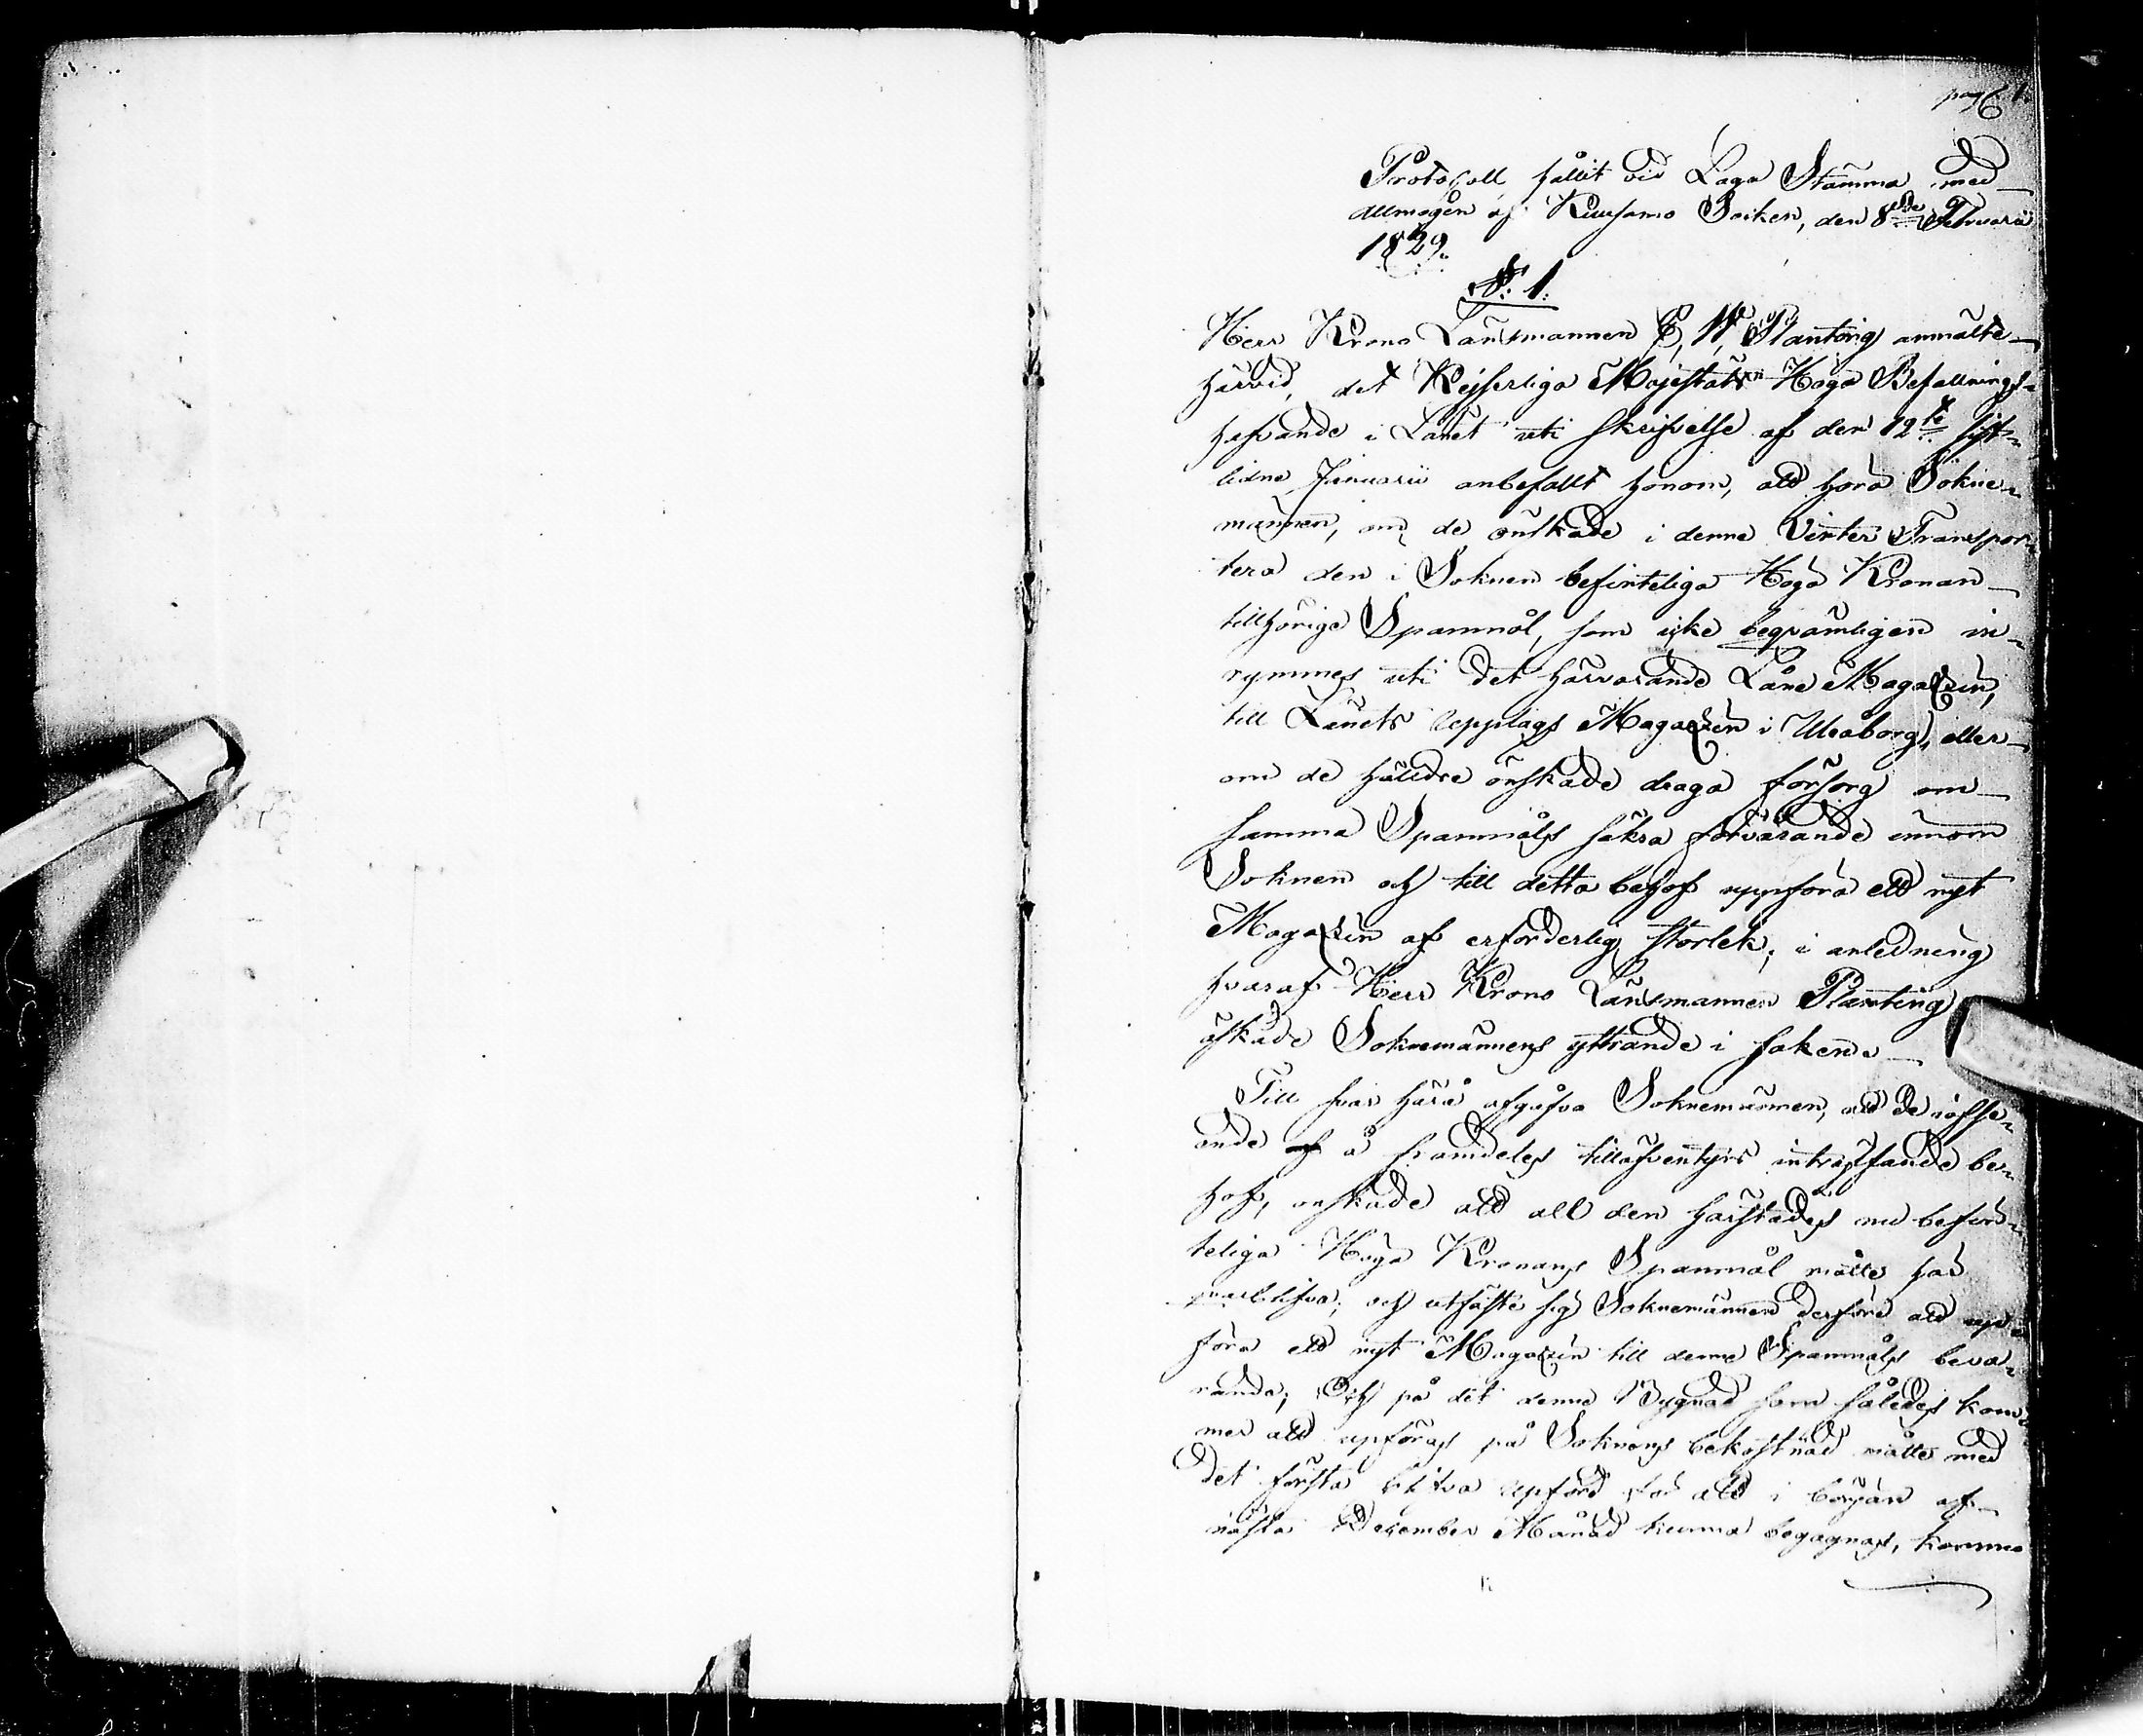 pag 1.
Protocoll hållit vid Laga Stämma med
Allmogen af Kuusamo Socken, den 8de Februarii
1829.
§: 1.
Herr Krono Länsmannen E, W, Planting anmälte
härvid, det Kejserliga Majestäts Höga Befallnings-
hafvande i Länet uti skrifvelse af den 12te sist-
lidne Januarii anbefallt honom, att höra Sokne-
männen, om de önskade i denne Vinter Transpor-
tera den i Soknen befinteliga Höga Kronan
tillhörige Spannmål, som icke beqvämligen in-
rymmes uti det härvarande Låne Magazin,
till Länets Upplags Magazin i Uleåborg, eller
om de hälldre önskade draga försorg om
samma Spannmåls säkra förvarande innom
Soknen och till detta behof uppföra ett nytt
Magazin af erforderlig storlek, i anledning
hvaraf Herr Krono Länsmannen Planting
äskade Soknemännens yttrande i saken.
Till svar härå afgåfvo Soknemännen, att de i afse-
ende å framdeles tilläfventyrs inträffande be-
hof, önskade att all den härstädes nu befin-
teliga Höga Kronans Spannmål måtte här
qvarblifva; och utfäste sig Soknemännen derföre att up-
föra ett nytt Magazin till denne Spannmåls beva-
rande; Och på det denne Bygnad som således kom-
mer att upföras på Soknens bekostnad måtte med
det första blifva upförd för att i början af
nästa December Månad kunna begagnas, komme